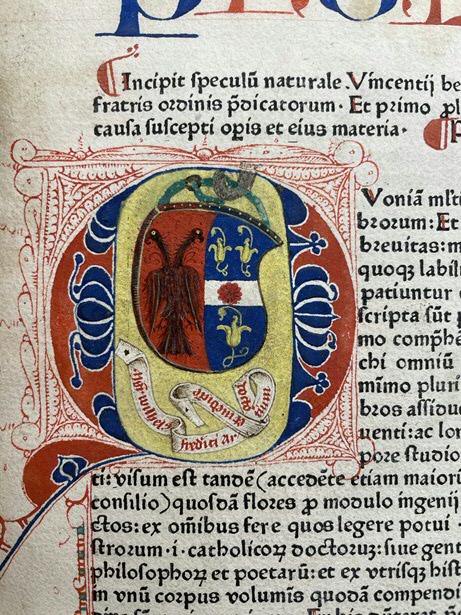 Incipit speculū naturale Vincentij be
fratris ordinis p̄dicatorum· Et primo
causa suscepti opis et eius materia·
Voniā ml̄ti
brorum: Et
breuitas: m
quoqꝫ labil
patiuntur
scripta sūt
mo comp̄he
chi omniū
mimo pluri
bros assidue
uenti: ac lon
pore studio
ti: visum est tandē (accedēte etiam maiorū
consilio) quosdā flores ꝓ modulo ingenij
ctos: ex om̄ibus fere quos legere potui
strorum·i·catholicoꝝ doctoruꝫ: siue gent
philosophoꝝ et poetarū: et ex vtrisqꝫ hist
in vnū corpus volumīs quodā compendi